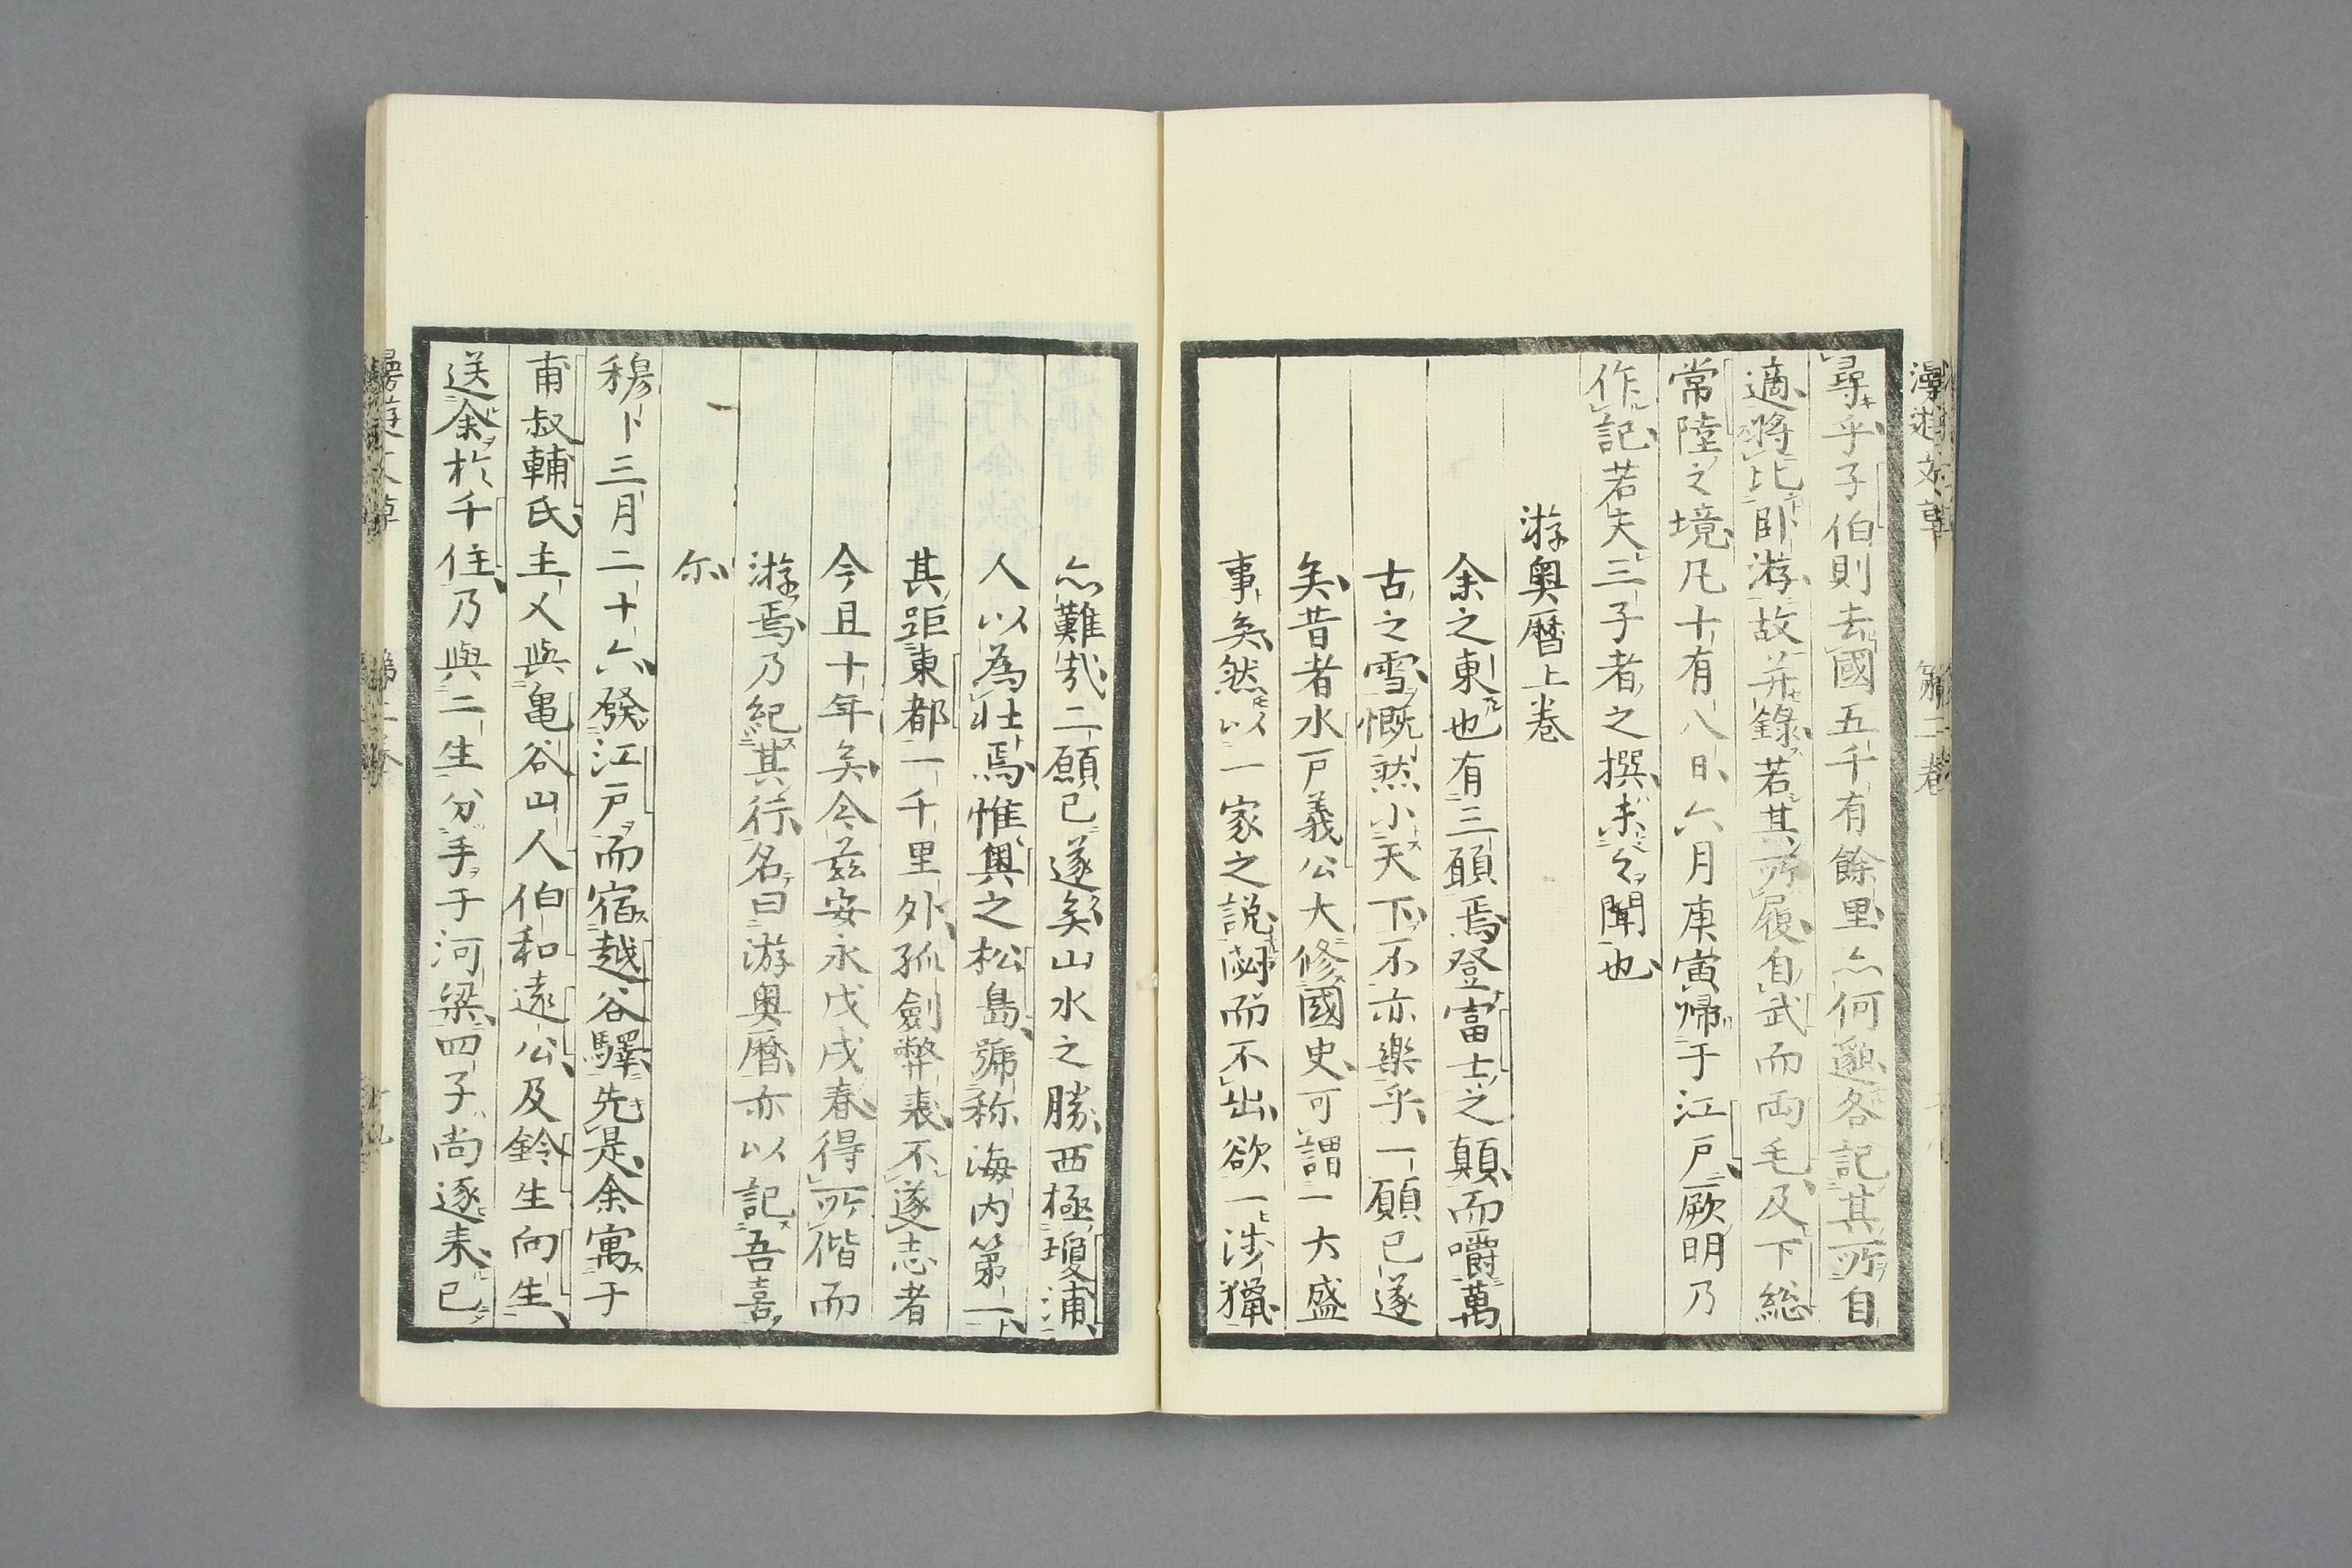 尋乎子伯則去國五千有餘里亦何邈各記其所自
適將比卧游故并錄若其所履自武而両毛及下総
常陸之境凡十有八日六月庚寅帰于江戸厥明乃
作記若夫三子者之撰未之聞也
游奥曆上卷
余之東也有三願焉登富士之顛而嚼萬
古之雪慨然小天下不亦樂乎一願已遂
矣昔者水戸義公大修國史可謂一大盛
事矣然以一家之説祕而不出欲一渉獵
亦難哉二願已遂矣山水之勝西極瓊浦
人以為壮焉惟奥之松島號称海内第一
其距東都一千里外孤劍弊裘不遂志者
今且十年矣今茲安永戊戌春得所偕而
游焉乃紀其行名曰游奥曆亦以記吾喜
尒
穆卜三月二十六發江戸而宿越谷驛先是余寓于
甫叔輔氏主乂與亀谷山人伯和遠公及鈴生向生
送余於千住乃與二生分手于河梁四子尚逐来已
漫遊文草
第二卷